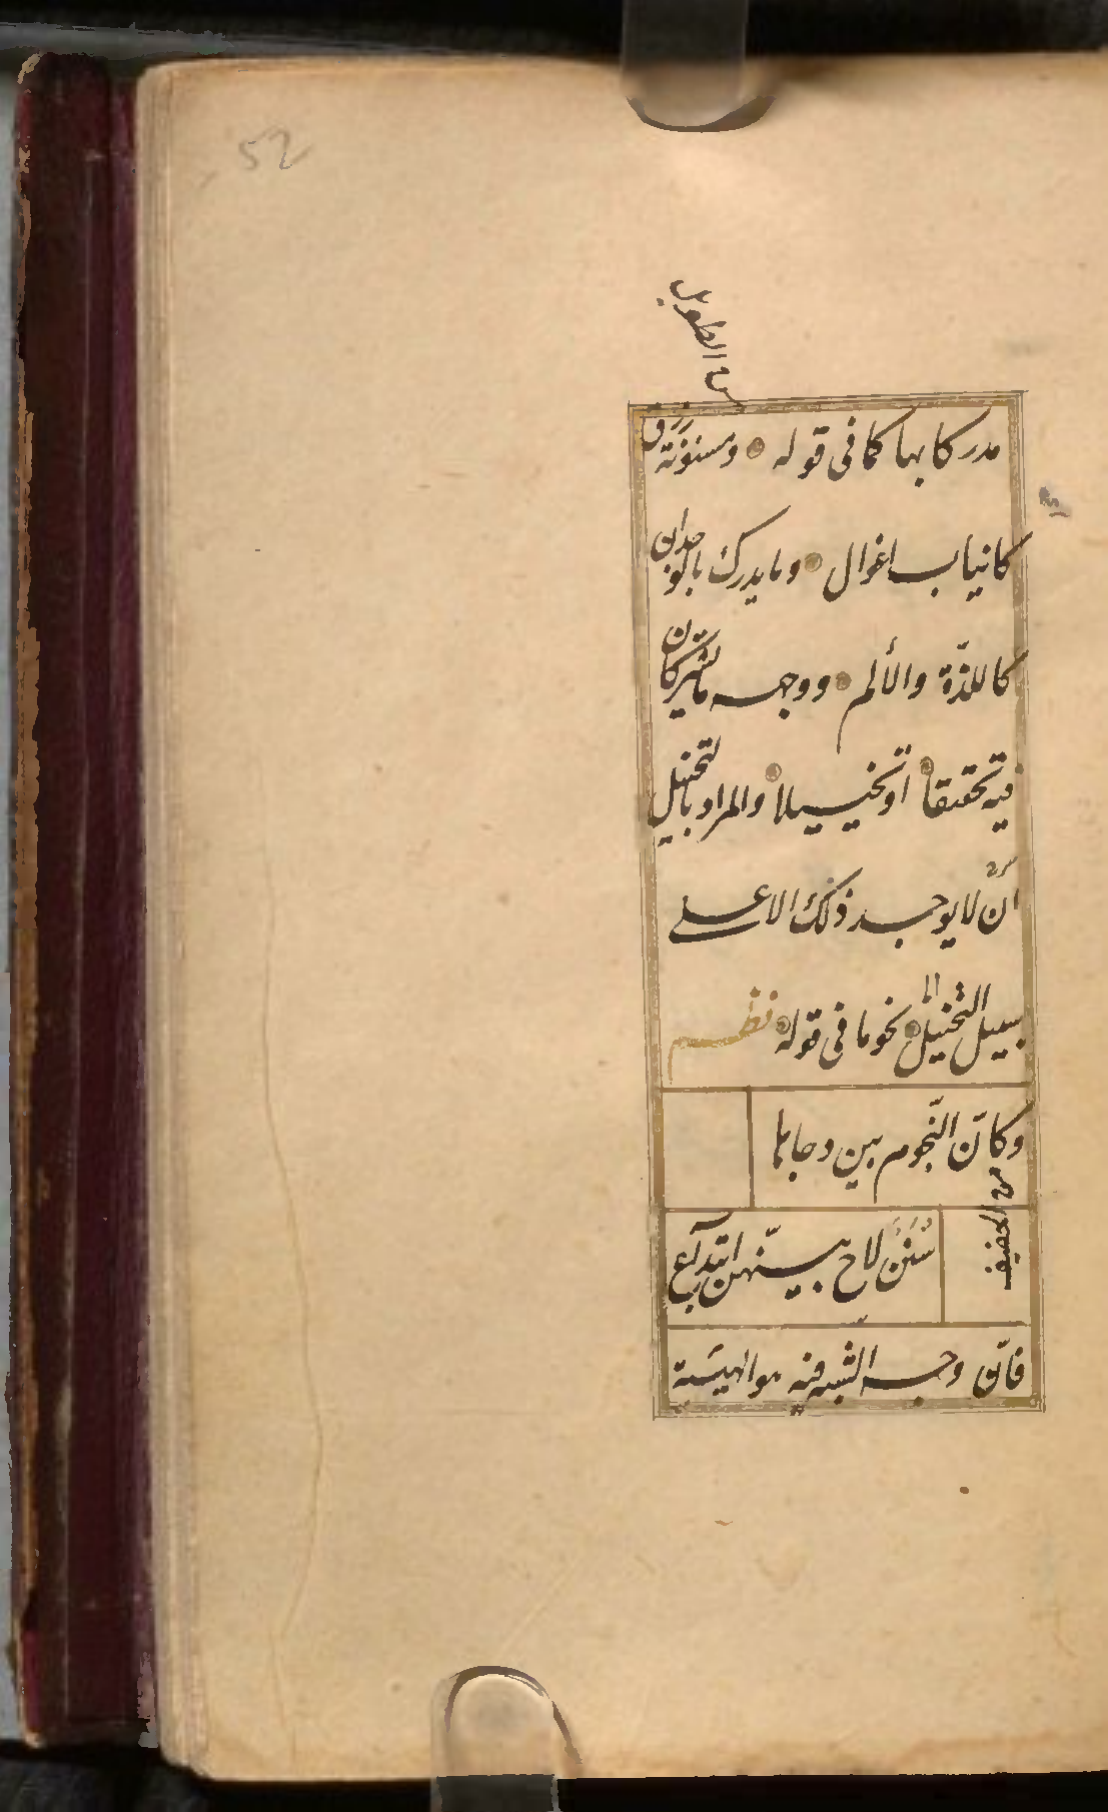 52
من الطويل
مدركا بها كما فى قوله ومسنونة زرق
كانياب اغوال وما يدرك بالوجدان
كاللذّة والألم ووجهه ما يشتركان
فيه تحقيقاً او تخييلاً والمراد بالتخييل
انّ لا يوجد ذلك الا على
سبيل التخييل نحو ما فى قوله نظم
وكانّ النّجوم بين دجاها
من الخفيف
سُنَنٌ لاح بينهنّ ابتداع
فانّ وجه الشّبه فيه هو الهيئة